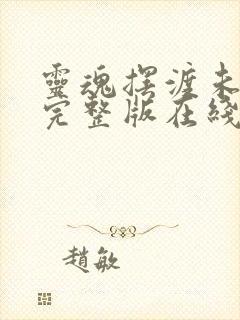 靈魂擺渡未
完整版在綫
趙敏